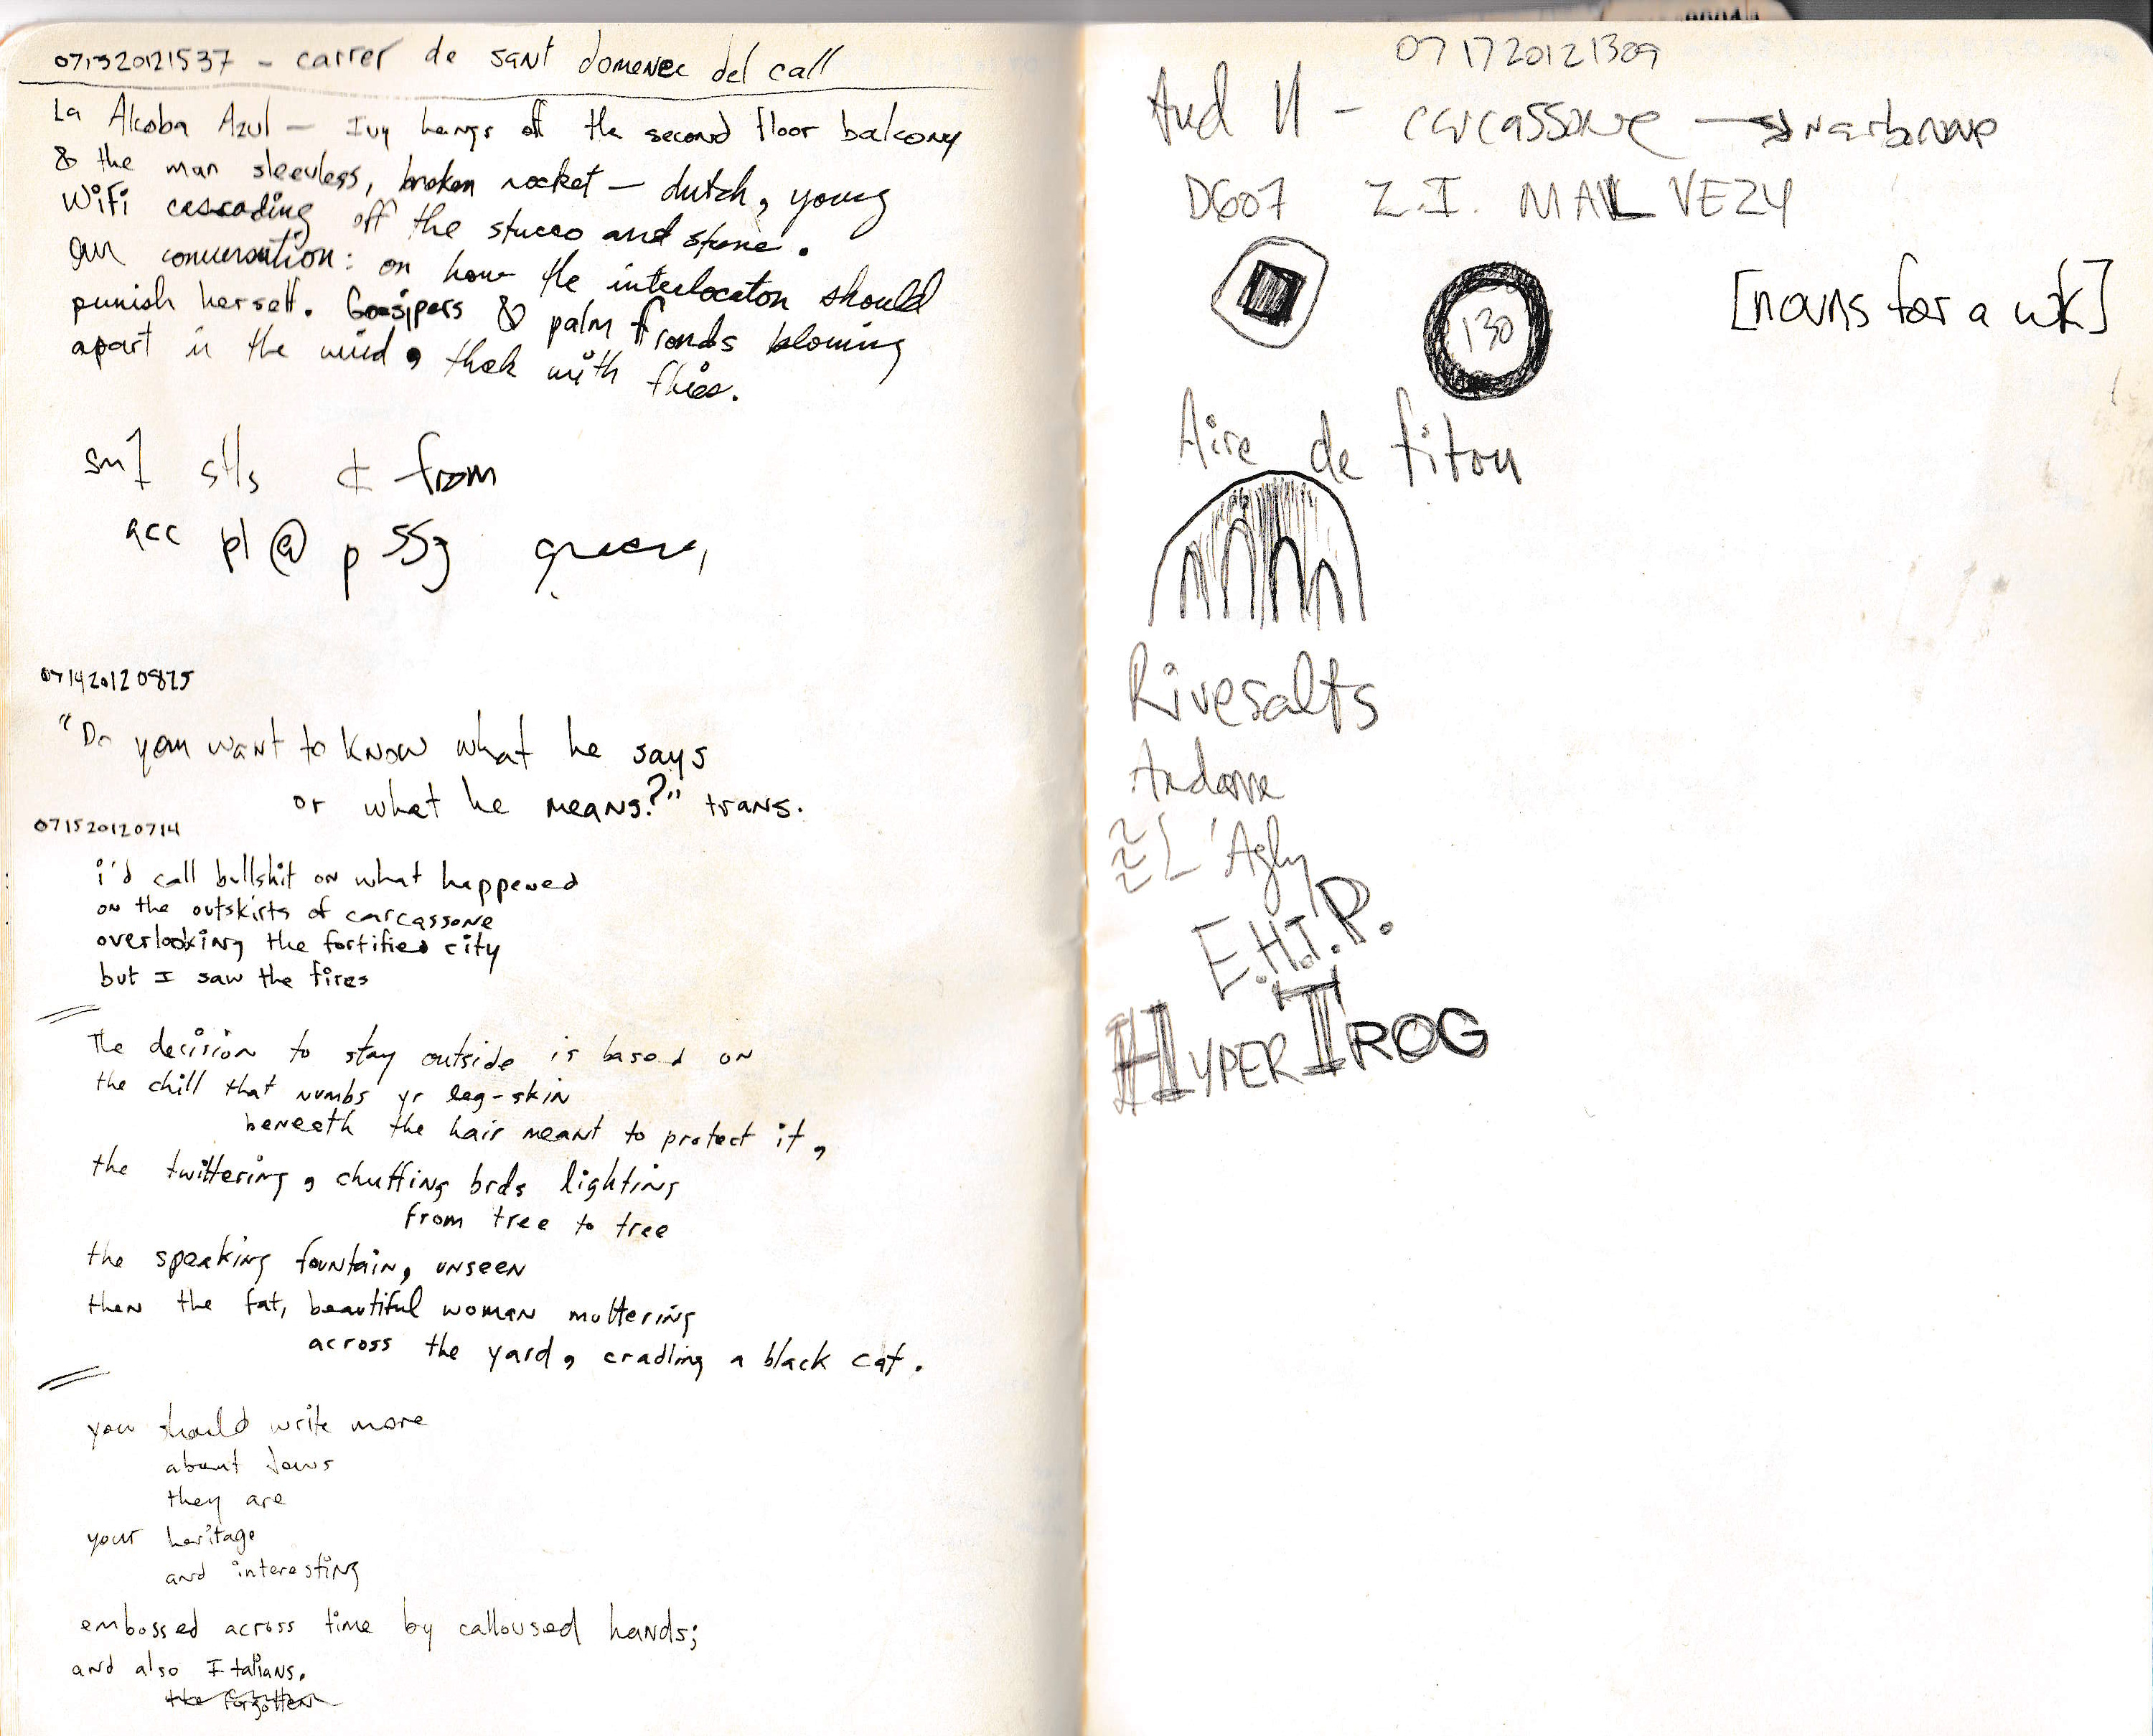 071320121537 - carrer de sant domenec del call
La Alcoba Azul — Ivy hangs off the second floor balcony
& the man sleevless, broken rocket — dutch, young
WiFi cascading off the stucco and stone.
our conversation: on how the interlocator should
punish herself. Gossipers & palm fronds blowing
apart in the wind, thick with flies.
sm] sts ¢ from
acc pl@ p ssg
071420120825
"Do you want to know what he says
or what he means?" trans.
071520120714
i'd call bullshit on what happened
on the outskirts of carcassone
overlooking the fortified city
but I saw the fires
The decision to stay outside is based on
the chill that numbs yr leg-skin
beneeth the hair meant to protect it,
the twittering, chuffing brds lighting
from tree to tree
the speaking fountain, unseen
then the fat, beautiful woman muttering
across the yard, cradling a black cat.
you should write more
about Jews
they are
your heritage
and interesting
embossed across time by calloused hands;
and also Italians.
the forgotten
071720121309
Aud 11 - carcassone → narbonne
D607 Z.I. MALVEZY
130
[nouns for a wk]
Aire de fitou
Rivesalts
Andorre
L'Agly
E.H.T.P.
HYPER FROG